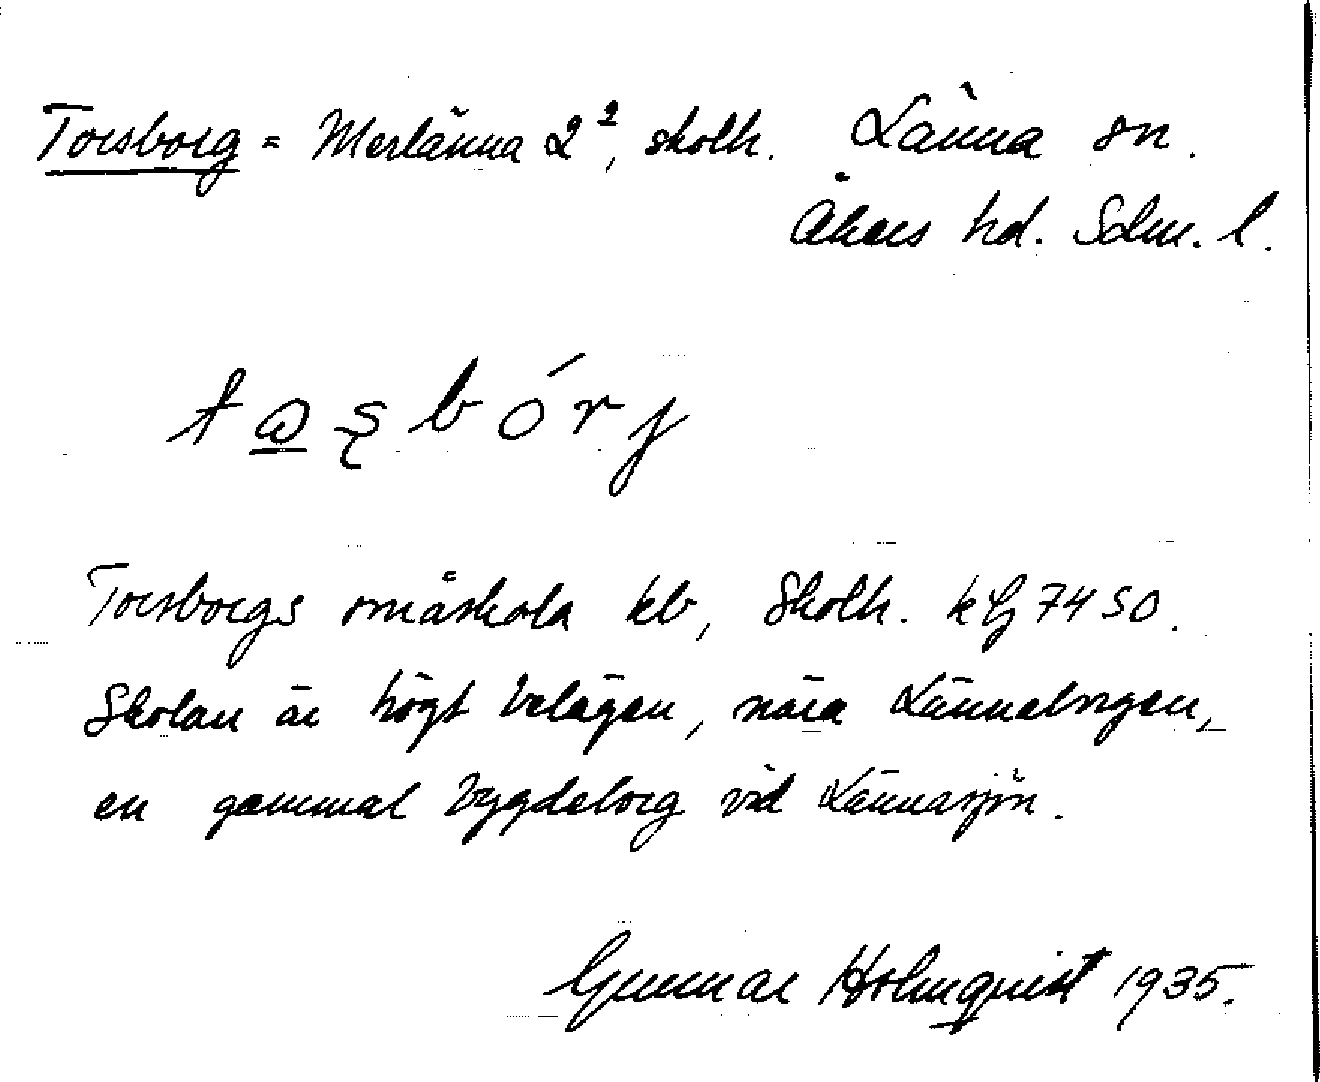 Torsborg = Merlänna 2², skolh. Länna sn.
Åkers hd. Sdm. l.
tɷ̲ʂbórj
Torsborgs småskola kb, Skolh. kG 7450.
Skolan är högt belägen, nära Länneborgen,
en gammal bygdeborg vid Lännasjön.
Gunnar Holmquist 1935.